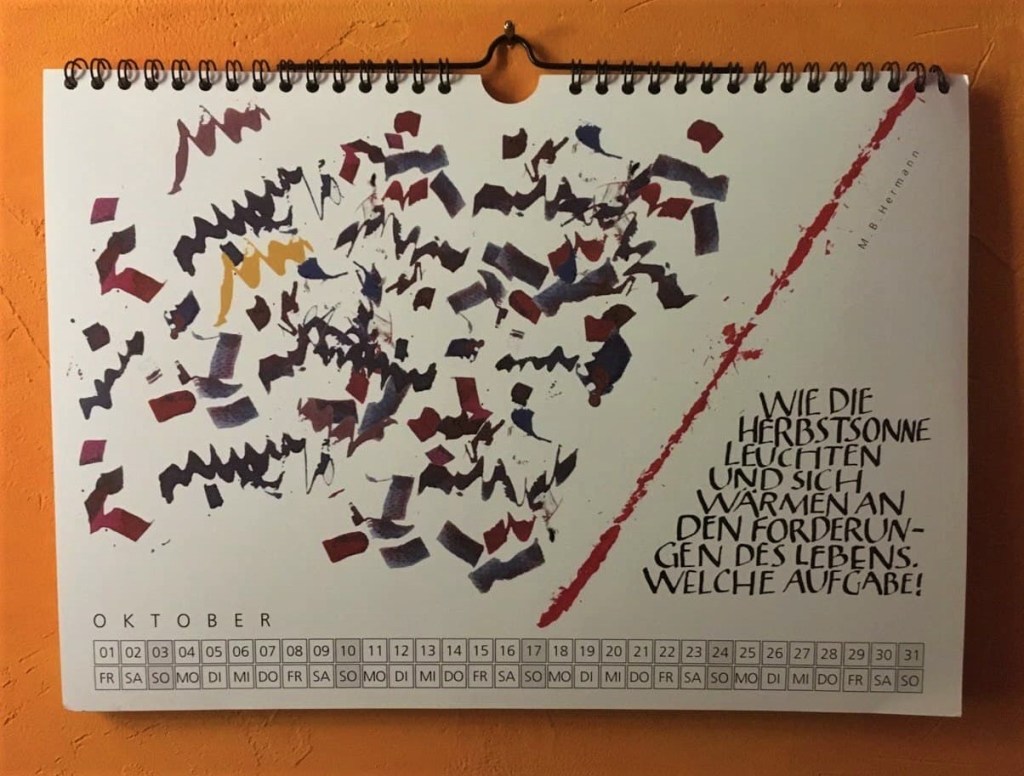 M.B. Hermann
WIE DIE
HERBSTSONNE
LEUCHTEN
UND SICH
WÄRMEN AN
DEN FORDERUN-
GEN DES LEBENS.
WELCHE AUFGABE!
OKTOBER
01 02 03 04 05 06 07 08 09 10 11 12 13 14 15 16 17 18 19 20 21 22 23 24 25 26 27 28 29 30 31
FR SA SO MO DI MI DO FR SA SO MO DI MI DO FR SA SO MO DI MI DO FR SA SO MO DI MI DO FR SA SO